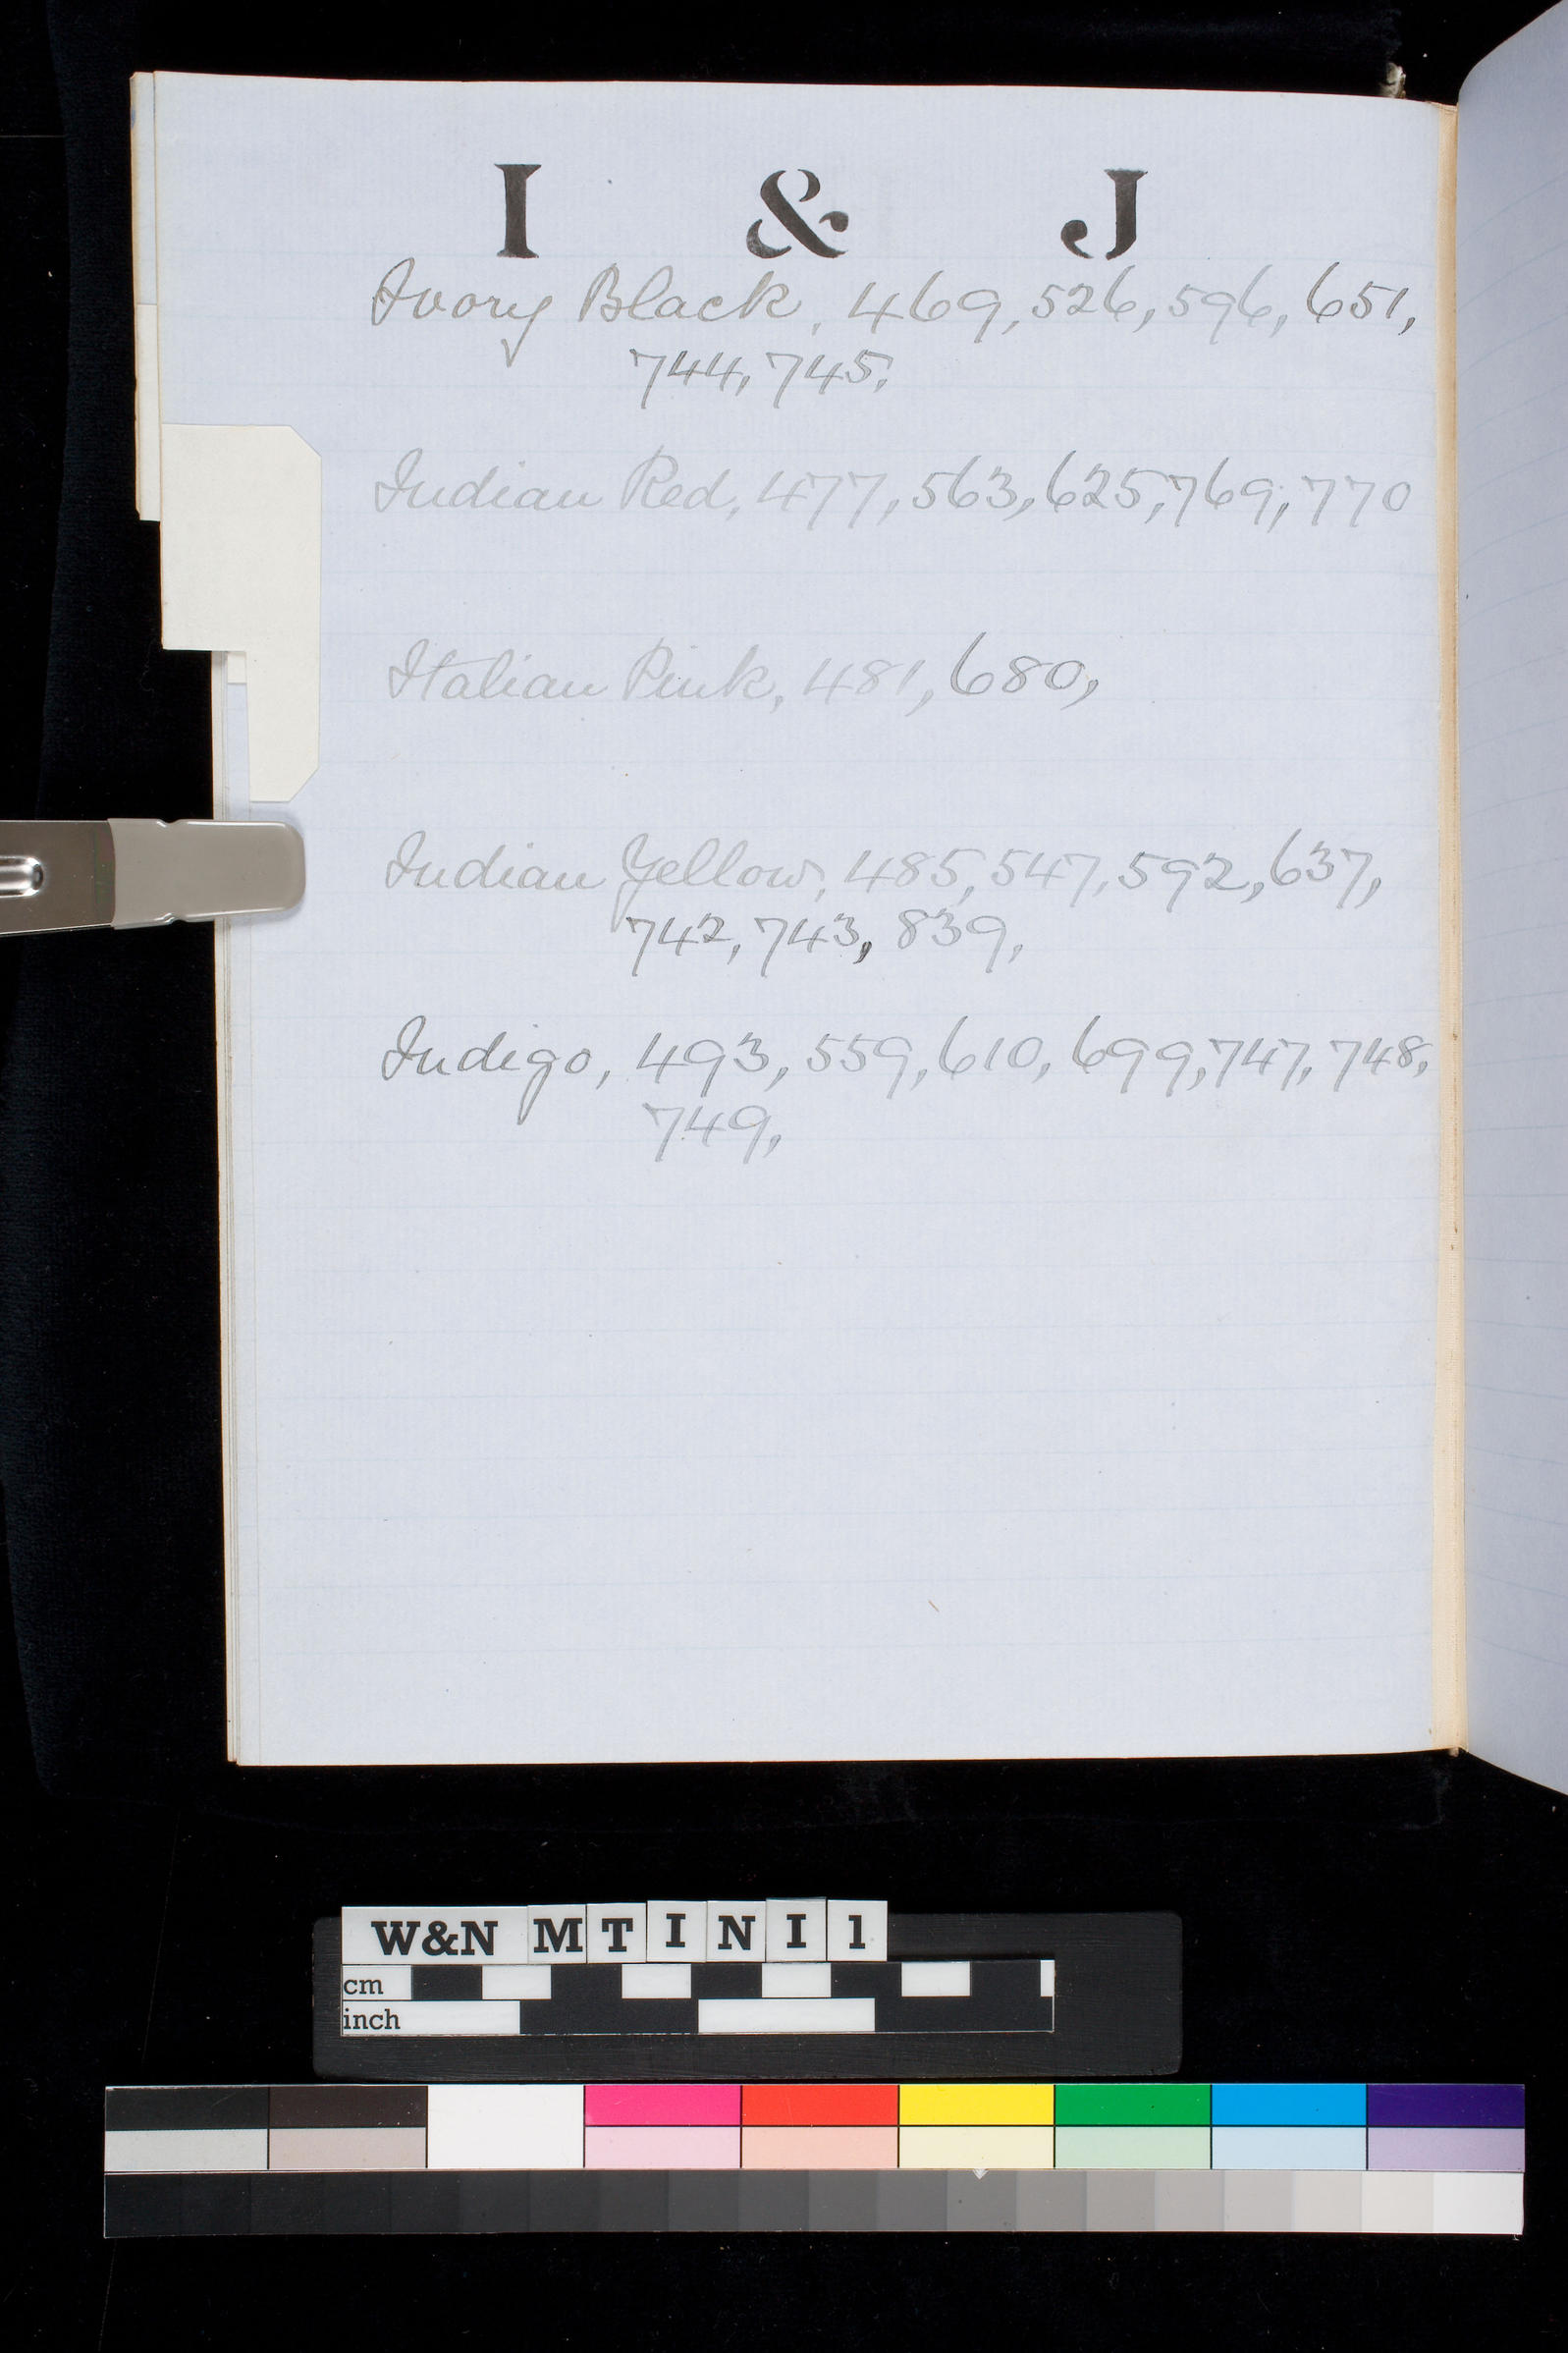 I & J
Ivory Black, 469, 526, 596, 651,
744, 745,
Indian Red, 477, 563, 625, 769, 770
Italian Pink, 481, 680,
Indian Yellow, 485, 547, 592, 637,
742, 743, 839,
Indigo, 493, 559, 610, 699, 747, 748,
749,
W&N M T I N I 1
cm
inch